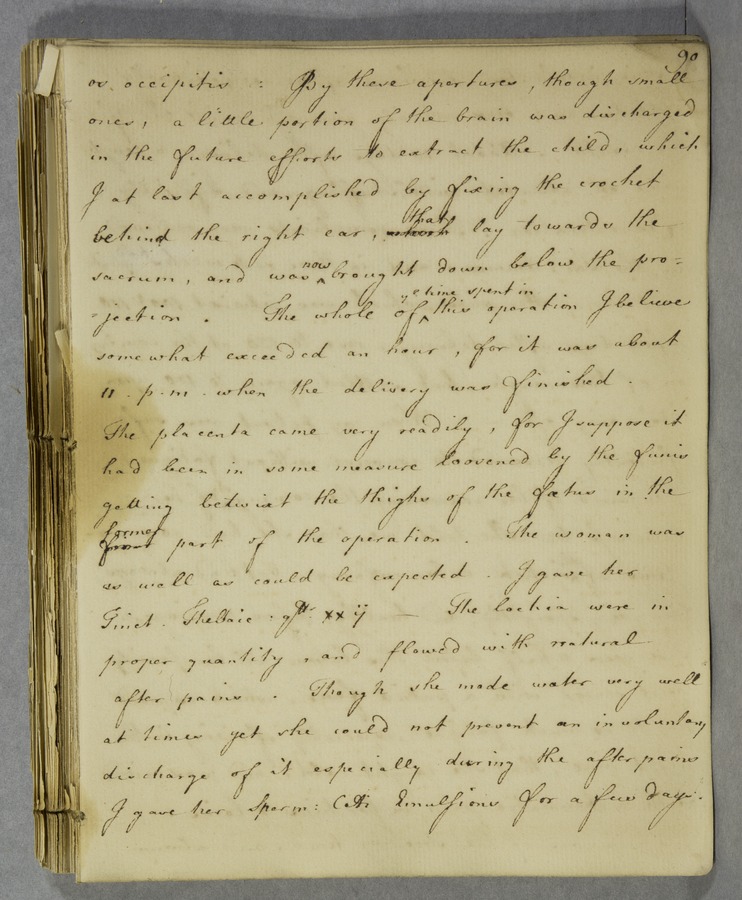 90
os. occipitis : By these apertures, though small
ones, a little portion of the brain was discharged
in the future efforts to extract the child, which
I at last accomplished by fixing the crochet
that
behind the right ear, which lay towards the
now
sacrum, and was ‸ brought down below the pro=
ye time spent in
=jection . The whole of ‸ this operation I believe
somewhat exceeded an hour, for it was about
11 . p. m. when the delivery was finished .
The placenta came very readily, for I suppose it
had been in some measure loosened by the funis
getting betwixt the thighs of the fœtus in the
former
part of the operation . The woman was
as well as could be expected . I gave her
Tinct. Thebaic : gtt. xx ij — The lochia were in
proper quantity, and flowed with natural
after pains . Though she made water very well
at times yet she could not prevent an involuntary
discharge of it especially during the after pains
I gave her Sperm: Ceti Emulsions for a few days.